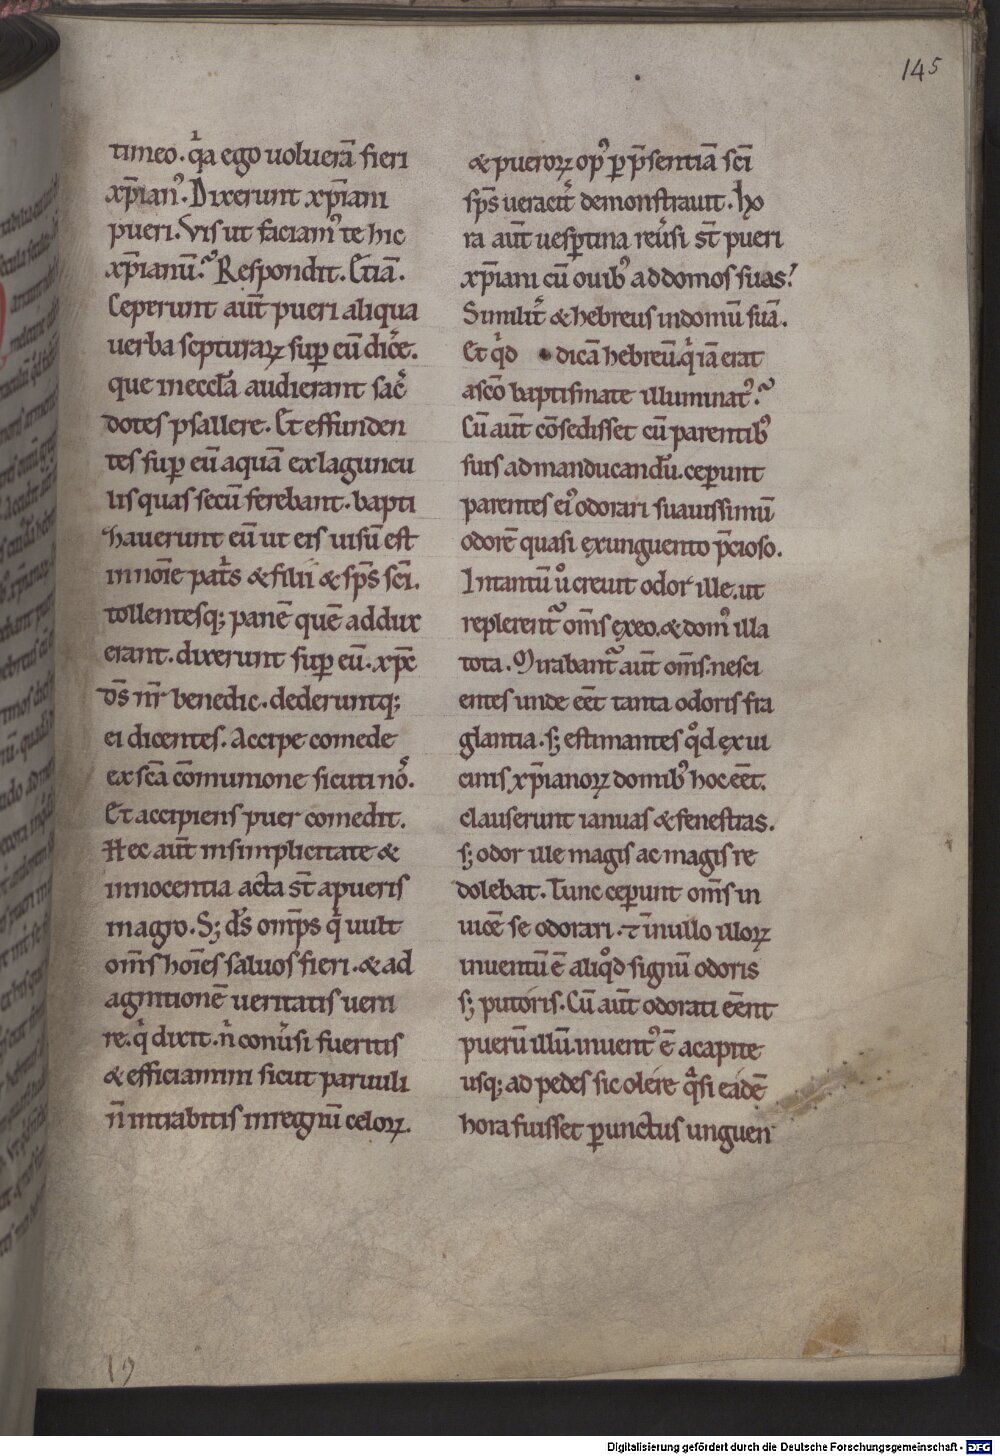 145
timeo. q̇a ego uoluerā fieri
xp̄ian᾿. Dixerunt xp̄iani
pueri. Vis ut faciam᾿ te hic
xp̄ianū? Respondit. Etiā.
Ceperunt aut̄ pueri aliqua
uerba scpturaꝝ sup̄ eū dic̄e.
que in eccl̄a audierant sac̄
dotes psallere. Et effunden
tes sup̄ eū aquā ex laguncu
lis quas secū ferebant. bapti
zauerunt eū ut eis uisū est
in noīe pat̄s & filii & sp̄s sc̄i.
tollentesq; panē quē addux
erant. dixerunt sup̄ eū. xp̄c
d̄s nr̄ benedic. dederuntq;
ei dicentes. Accipe comede
ex sc̄a cōmunione sicuti nō.
Et accipiens puer comedit.
Hec aut̄ in simplicitate &
innocentia acta st̄ a pueris
in agro. S; d̄s omp̄s q̇ uult
om̄s hoīes saluos fieri. & ad
agnitionē ueritatis ueni
re. q̇ dixit. n̄ conūsi fueritis
& efficiamini sicut paruuli
n̄ intrabitis in regnū celoꝝ.
& pueroꝝ op᾿ ꝑ p̄sentiā sc̄i
sp̄s ueracit̄ demonstrauit. Ho
ra aut̄ uesptina reūsi st̄ pueri
xp̄iani cū ouib᾿ ad domos suas.
Similit̄ & hebreus in domū suā.
Et q̇d dicā hebreū. q̇ iā erat
a sc̄o baptismate illuminat᾿?
Cū aut̄ cōsedisset cū parentib᾿
suis ad manducandū. ceꝑunt
parentes ei᾿ odorari suauissimū
odorē quasi ex unguento p̄cioso.
In tantū u̇ creuit odor ille. ut
replerent̄ om̄s ex eo. & dom᾿ illa
tota. Mirabant̄ aut̄ om̄s. nesci
entes unde eēt tanta odoris fra
glantia. s; estimantes qd̄ ex ui
cinis xp̄ianoꝝ domib᾿ hoc eēt.
clauserunt ianuas & fenestras.
s; odor ille magis ac magis re
dolebat. Tunc ceꝑunt om̄s in
uicē se odorari. ⁊ in nullo illoꝝ
inuentū ē aliqd̄ signū odoris
s; putoris. Cū aut̄ odorati eēnt
puerū illū. inuent᾿ ē a capite
usq; ad pedes sic olere q̇si eadē
hora fuisset ꝑunctus unguen
19
Digitalisierung gefördert durch die Deutsche Forschungsgemeinschaft - DFG